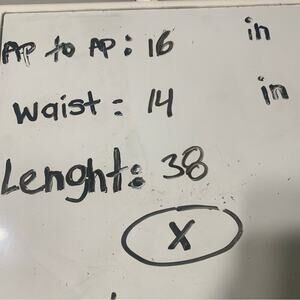 AP to AP: 16 in
Waist: 14 in
Lenght: 38
X